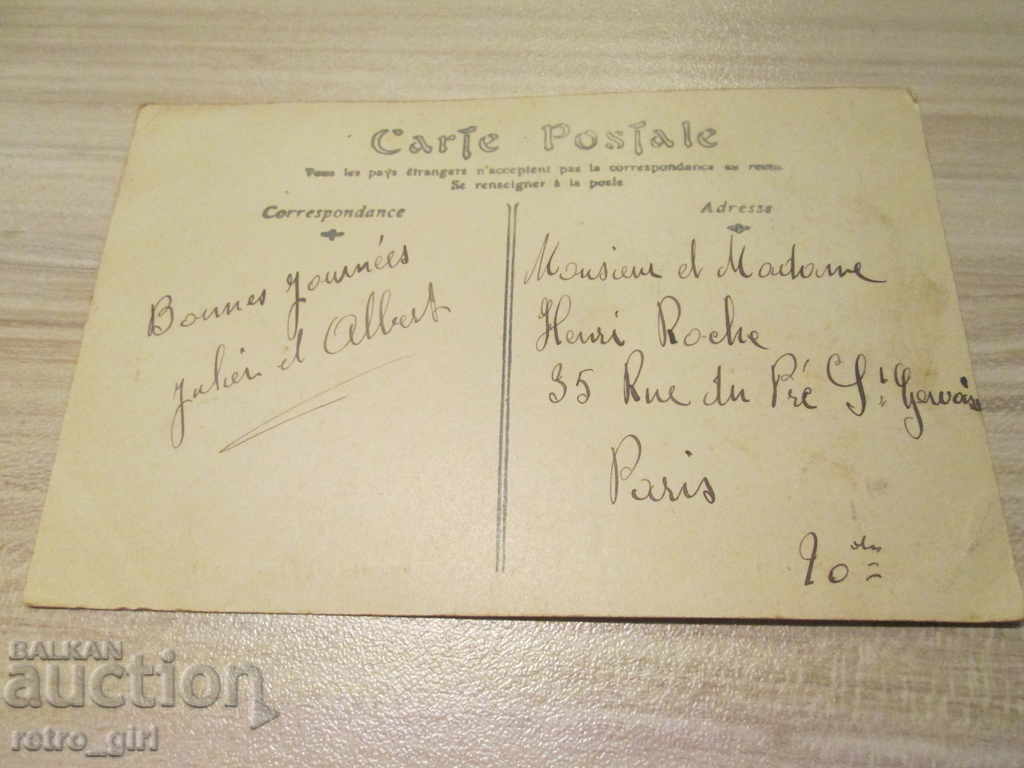 Carte Postale
Tous les pays étrangers n'acceptent pas la correspondance au recto
Se renseigner à la poste
Correspondance
Bonnes Journées
Julien et Albert
Adresse
Monsieur et Madame
Henri Roche
35 Rue du Pré St Gervais
Paris
BALKAN
auction
retro_girl